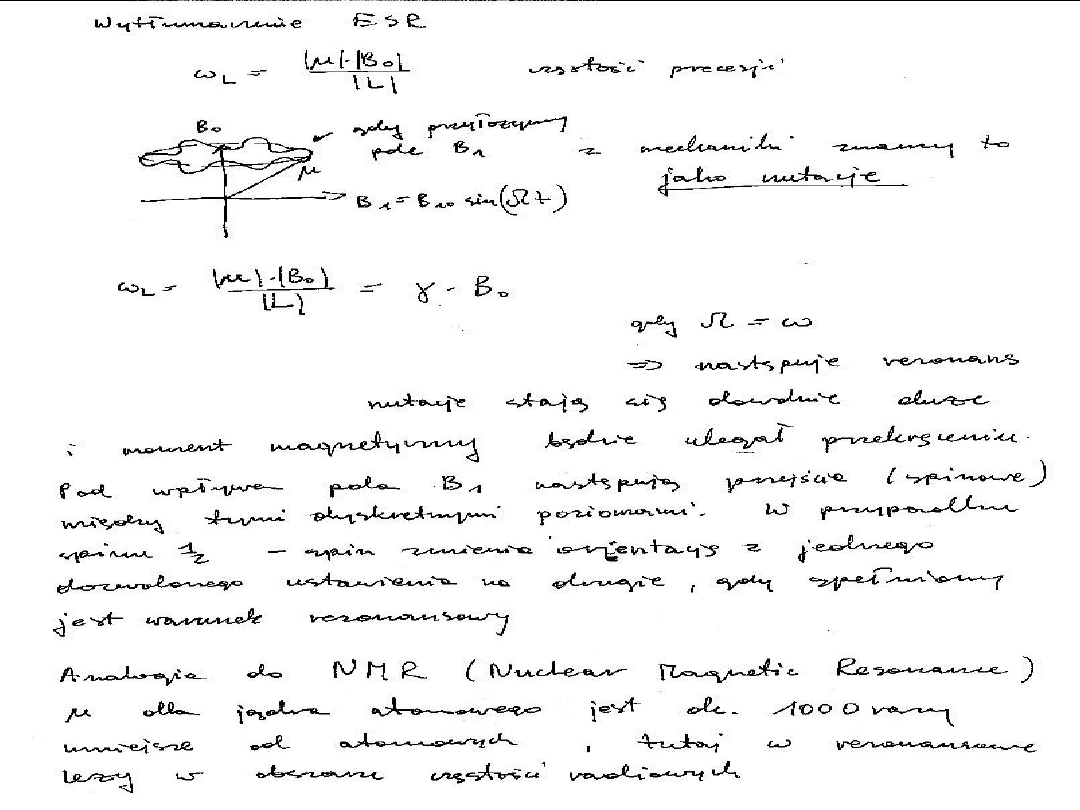 Wytłumaczenie ESR
ω_L = |μ|·|B₀| / |L| częstość precesji
B₀ gdy przyłożymy
pole B₁ z mechaniki znamy to
μ jako nutacje
B₁ = B₁₀ sin(Ωt)
ω_L = |μ|·|B₀| / |L| = γ · B₀
gdy Ω = ω
⇒ następuje rezonans
nutacje stają się dowolnie duże
i moment magnetyczny będzie ulegał przekręceniu.
Pod wpływem pola B₁ następują przejścia (spinowe)
między tymi dyskretnymi poziomami. W przypadku
spinu 1/2 – spin zmienia orientację z jednego
dozwolonego ustawienia na drugie, gdy spełniony
jest warunek rezonansowy
Analogia do NMR (Nuclear Magnetic Resonance)
μ dla jądra atomowego jest ok. 1000 razy
mniejsze od atomowych, tutaj w rezonansowe
leży w obszarze częstości radiowych